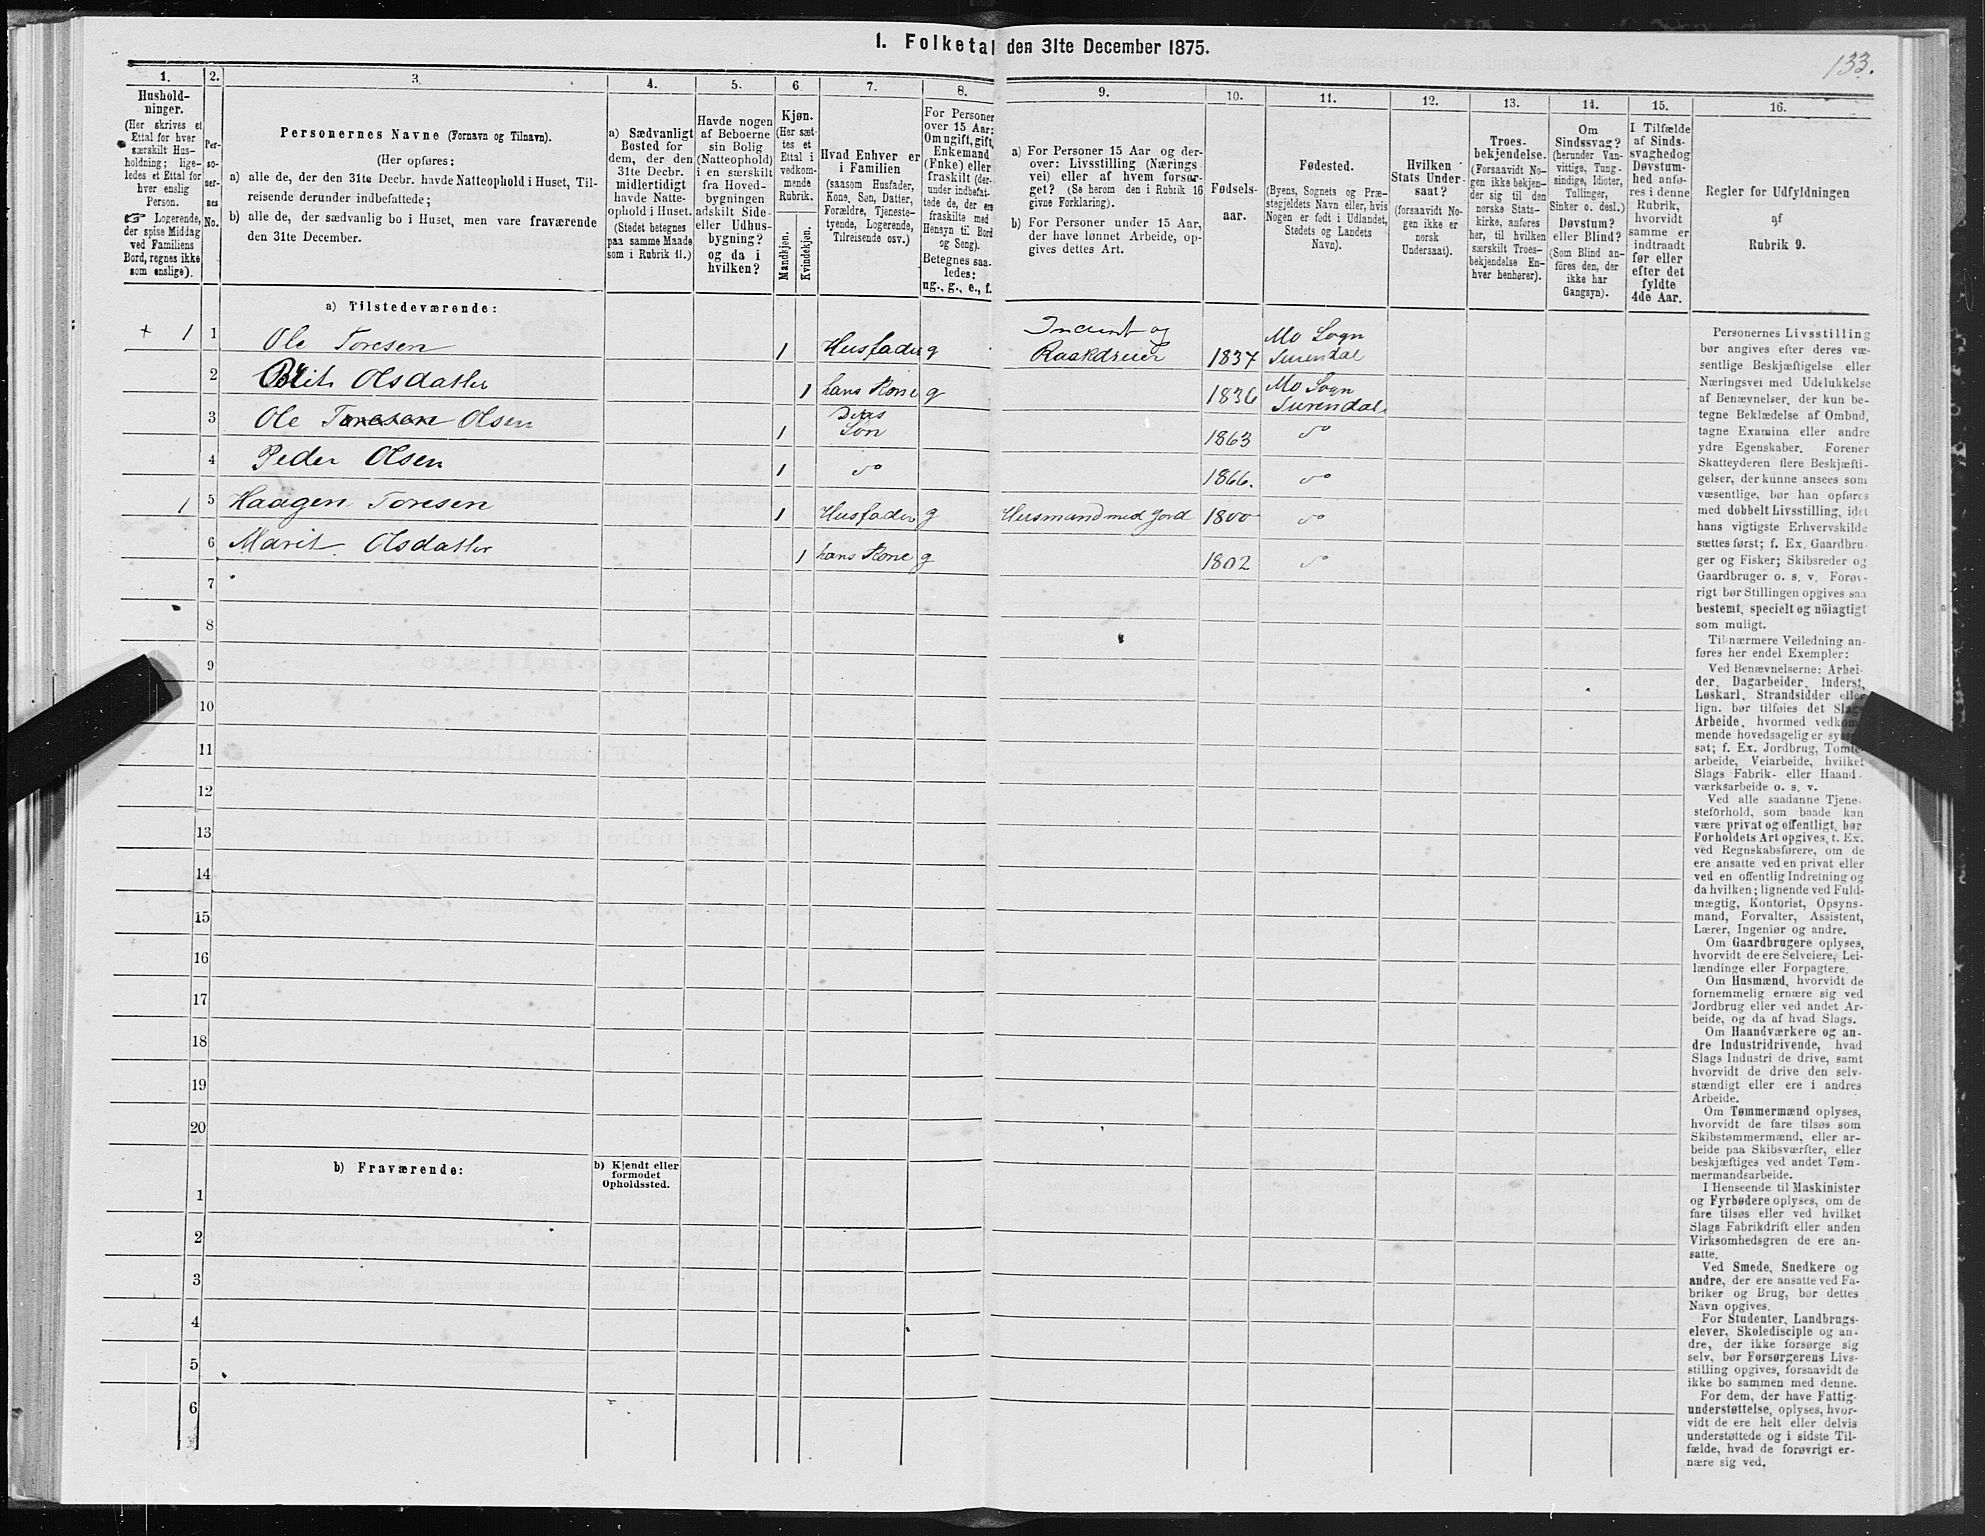 1. Folketal den 31te December 1875.
133.
1.
2.
3.
4.
5.
6.
7.
8.
9.
10.
11.
12.
13.
14.
15.
16.
Hushold-
ninger.
(Her skrives et
Ettal for hver
særskilt Hus-
holdning; lige-
ledes et Ettal for
hver enslig
Person.
☞ Logerende,
der spise Middag
ved Familiens
Bord, regnes ikke
som enslige).
Per-
so-
ner-
nes
No.
Personernes Navne (Fornavn og Tilnavn).
(Her opføres:
a) alle de, der den 31te Decbr. havde Natteophold i Huset, Til-
reisende derunder indbefattede;
b) alle de, der sædvanlig bo i Huset, men vare fraværende
den 31te December.
a) Sædvanligt
Bosted for
dem, der den
31te Decbr.
midlertidigt
havde Natte-
ophold i Huset.
(Stedet betegnes
paa samme Maade
som i Rubrik 11.)
Havde nogen
af Beboerne
sin Bolig
(Natteophold)
i en særskilt
fra Hoved-
bygningen
adskilt Side-
eller Udhus-
bygning?
og da i
hvilken?
Kjøn.
(Her sæt-
tes et
Ettal i
vedkom-
mende
Rubrik.
Mandkjøn.
Kvindekjøn.
Hvad Enhver er
i Familien
(saasom Husfader,
Kone, Søn, Datter,
Forældre, Tjeneste-
tyende, Logerende,
Tilreisende osv.)
For Personer
over 15 Aar:
Om ugift, gift,
Enkemand
(Fnke) eller
fraskilt (der-
under indbefat-
tede de, der ere
fraskilte med
Hensyn til Bord
og Seng).
Betegnes saa-
ledes:
ug., g., e., f.
a) For Personer 15 Aar og der-
over: Livsstilling (Nærings-
vei) eller af hvem forsør-
get? (Se herom den i Rubrik 16
givne Forklaring).
b) For Personer under 15 Aar,
der have lønnet Arbeide, op-
gives dettes Art.
Fødsels-
aar.
Fødested.
(Byens, Sognets og Præ-
stegjeldets Navn eller, hvis
Nogen er født i Udlandet,
Stedets og Landets
Navn).
Hvilken
Stats Under-
saat?
(forsaavidt No-
gen ikke er
norsk
Undersaat).
Troes-
bekjendelse.
(Forsaavidt No-
gen ikke bekjen-
der sig til den
norske Stats-
kirke, anføres
her, til hvilken
særskilt Troes-
bekjendelse En-
hver henhører).
Om
Sindssvag?
(herunder Van-
vittige, Tung-
sindige, Idioter,
Tullinger,
Sinker o. desl.)
Døvstum?
eller Blind?
(Som Blind an-
føres den, der
ikke har
Gangsyn).
I Tilfælde
af Sinds-
svaghed og
Døvstum-
hed anfø-
res i denne
Rubrik,
hvorvidt
samme er
indtraadt
før eller
efter det
fyldte
4de Aar.
Regler for Udfyldningen
af
Rubrik 9.
a) Tilstedeværende:
+ 1 1 Ole Toresen 1 Husfader g Raakdreier 1837 Mo Sogn
Surendal
2 Brit Olsdatter 1 hans Kone g 1836 Mo Sogn
Surendal
3 Ole Toresen Olsen 1 Deres
Søn 1863 do
4 Peder Olsen 1 do 1866. do
1 5 Haagen Toresen 1 Husfader g Husmand med Jord 1800 do
6 Marit Olsdatter 1 hans Kone g 1802 do
7
8
9
10
11
12
13
14
15
16
17
18
19
20
b) Fraværende:
b) Kjendt eller
formodet
Opholdssted.
1
2
3
4
5
6
Personernes Livsstilling
bør angives efter deres væ-
sentlige Beskjæftigelse eller
Næringsvei med Udelukkelse
af Benævnelser, der kun be-
tegne Beklædelse af Ombud,
tagne Examina eller andre
ydre Egenskaber. Forener
Skatteyderen flere Beskjæfti-
gelser, der kunne ansees som
væsentlige, bør han opføres
med dobbelt Livsstilling, idet
hans vigtigste Erhvervskilde
sættes først; f. Ex. Gaardbru-
ger og Fisker; Skibsreder og
Gaardbruger o. s. v. Forøv-
rigt bør Stillingen opgives saa
bestemt, specielt og nöiagtigt
som muligt.
Til nærmere Veiledning an-
føres her endel Exempler:
Ved Benævnelserne: Arbei-
der, Dagarbeider, Inderst,
Løskarl, Strandsidder eller
lign. bør tilføies det Slags
Arbeide, hvormed vedkom-
mende hovedsagelig er syssel-
sat; f. Ex. Jordbrug, Tomte-
arbeide, Veiarbeide, hvilket
Slags Fabrik- eller Haand-
værksarbeide o. s. v.
Ved alle saadanne Tjene-
steforhold, som baade kan
være privat og offentligt, bør
Forholdets Art opgives, t. Ex.
ved Regnskabsførere, om de
ere ansatte ved en privat eller
ved en offentlig Indretning og
da hvilken; lignende ved Fuld-
mægtig, Kontorist, Opsyns-
mand, Forvalter, Assistent,
Lærer, Ingeniør og andre.
Om Gaardbrugere oplyses,
hvorvidt de ere Selveiere, Lei-
lændinge eller Forpagtere.
Om Husmænd, hvorvidt de
fornemmelig ernære sig ved
Jordbrug eller ved andet Ar-
beide, og da af hvad Slags.
Om Haandværkere og an-
dre Industridrivende, hvad
Slags Industri de drive, samt
hvorvidt de drive den selv-
stændigt eller ere i andres
Arbeide.
Om Tømmermænd oplyses,
hvorvidt de fare tilsøs som
Skibstømmermænd, eller ar-
beide paa Skibsværfter, eller
beskjæftiges ved andet Tøm-
mermandsarbeide.
I Henseende til Maskinister
og Fyrbødere oplyses, om de
fare tilsøs eller ved hvilket
Slags Fabrikdrift eller anden
Virksomhedsgren de ere an-
satte.
Ved Smede, Snedkere og
andre, der ere ansatte ved Fa-
briker og Brug, bør dettes
Navn opgives.
For Studenter, Landbrugs-
elever, Skoledisciple og an-
dre, der ikke forsørge sig
selv, bør Forsørgerens Livs-
stilling opgives, forsaavidt de
ikke bo sammen med denne.
For dem, der have Fattig-
understøttelse, oplyses, hvor-
vidt de ere helt eller delvis
understøttede og i sidste Til-
fælde, hvad de forøvrigt er-
nære sig ved.